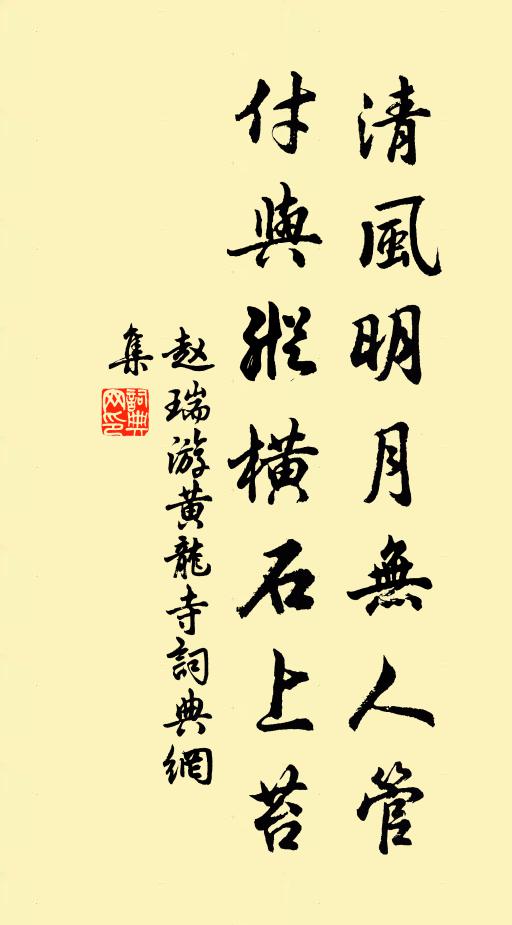 清風明月無人管
付與縱橫石上苔
赵瑞游黄龍寺詞典網
集
詞典
网印